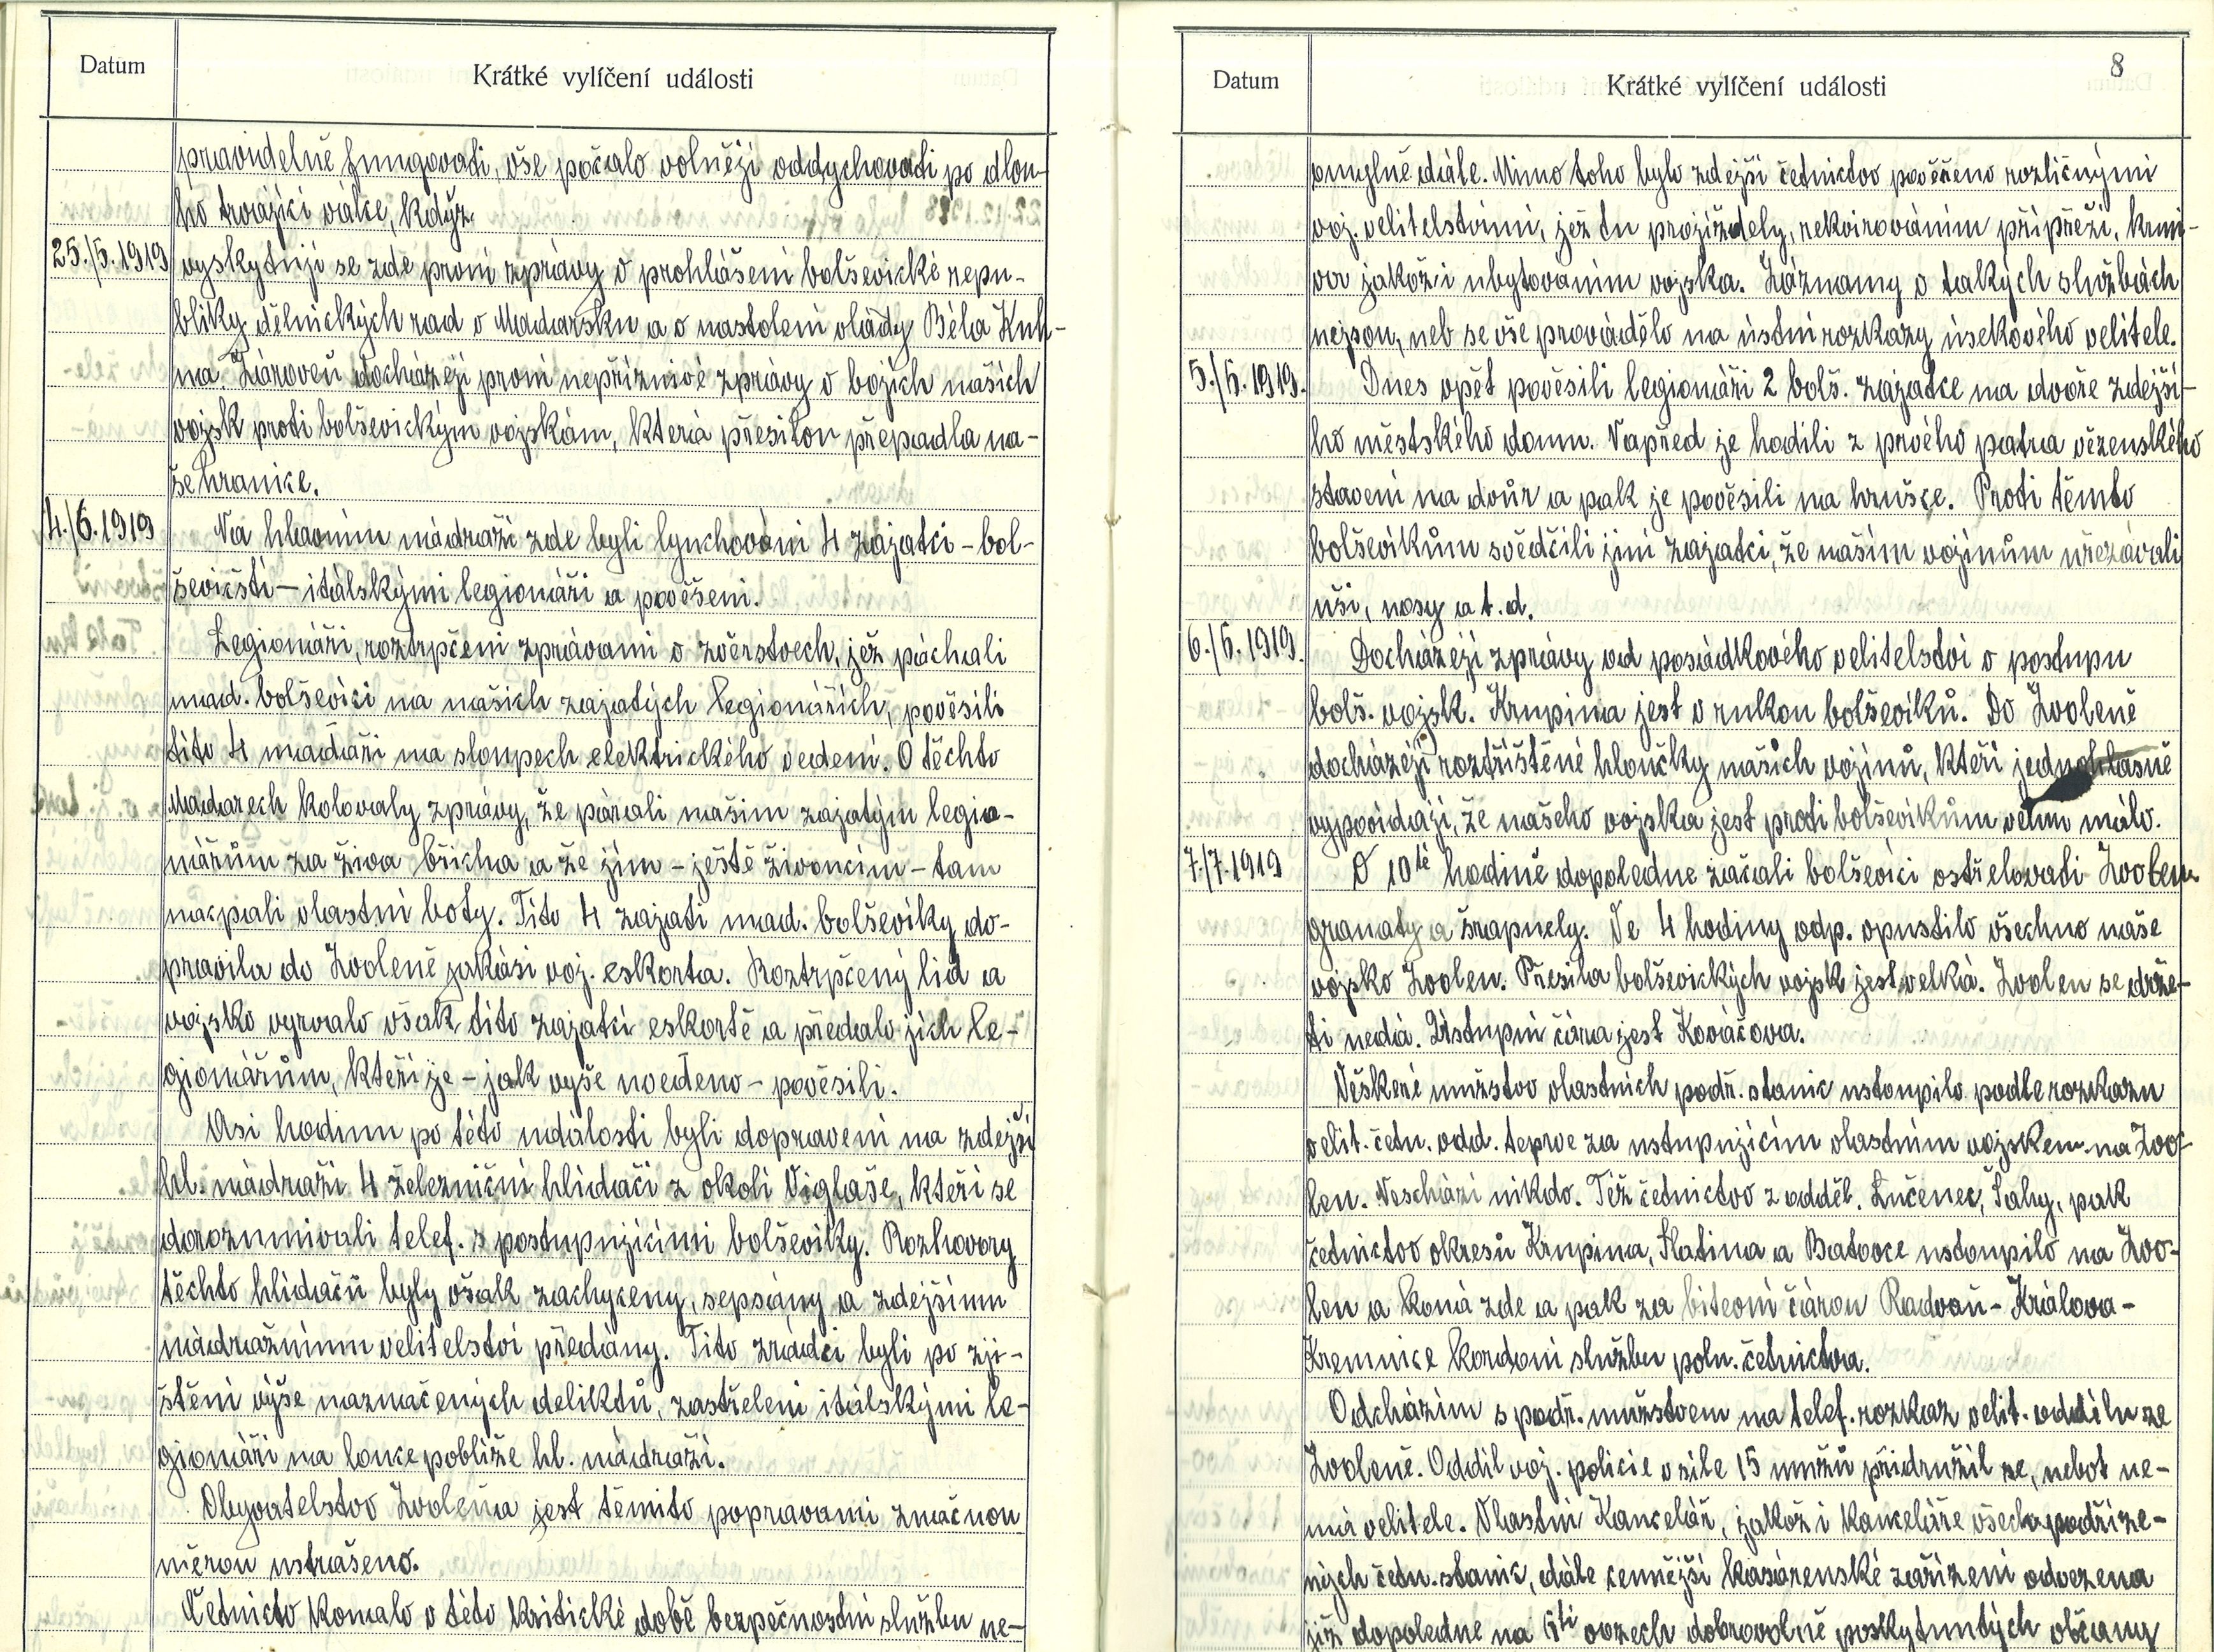 Datum
Krátké vylíčení události
pravidelně fungovati, vše počalo volněji oddychovati po dlou-
ho trvající válce, když.
25./5.1919 vyskytují se zde první zprávy o prohlášení bolševické repu-
bliky dělnických rad v Maďarsku a o nastolení vlády Béla Kuh-
na. Zároveň docházejí první nepříznivé zprávy o bojích našich
vojsk proti bolševickým vojskám, která přesilou přepadla na-
še hranice.
4./6.1919 Na hlavním nádraží zde byli lynchováni 4 zajatci - bol-
ševičtí - itálskými legionáři a pověšeni.
Legionáři, roztrpčeni zprávami o zvěrstvech, jež páchali
maď. bolševici na našich zajatých legionářích, pověsili
tito 4 maďaři na sloupech elektrického vedení. O těchto
Maďarech kolovaly zprávy, že párali našim zajatým legio-
nářům za živa břicha a že jim - ještě živoucím - tam
nacpali vlastní boty. Tito 4 zajatí maď. bolševiky do-
pravila do Zvoleně jakási voj. eskorta. Roztrpčený lid a
vojsko vyrvalo však tito zajatci eskortě a předalo jich le-
gionářům, kteří je - jak výše uvedeno - pověsili.
Asi hodinu po této události byli dopraveni na zdejší
hl. nádraží 4 železniční hlídači z okolí Vigľaše, kteří se
dorozumívali telef. s postupujícími bolševiky. Rozhovory
těchto hlídačů byly však zachyceny, sepsány a zdejšímu
nádražnímu velitelství předány. Tito zrádci byli po zji-
štění výše naznačených deliktů, zastřeleni itálskými le-
gionáři na louce poblíže hl. nádraží.
Obyvatelstvo Zvoleňa jest těmito popravami značnou
měrou ustrašeno.
Četnictvo konalo v této kritické době bezpečnostní službu ne-
8
Datum
Krátké vylíčení události
omylně dále. Mimo toho bylo zdejší četnictvo pověřeno rozličnými
voj. velitelstvími, jež tu projížděly, rekvirováním přípřeží, krmi-
vv jakož i ubytováním vojska. Záznamy o takých službách
nejsou, neb se vše provádělo na ústní rozkazy úsekového velitele.
5./6.1919. Dnes opět pověsili legionáři 2 bolš. zajatce na dvoře zdejší-
ho městského domu. Napřed je hodili z prvého patra vězenského
stavení na dvůr a pak je pověsili na hrušce. Proti těmto
bolševikům svědčili jiní zajatci, že našim vojínům uřezávali
uši, nosy a t. d.
6./6.1919. Docházejí zprávy od posádkového velitelství o postupu
bolš. vojsk. Krupina jest v rukou bolševiků. Do Zvoleně
docházejí roztříštěné hloučky našich vojínů, kteří jednohlasně
vypovídají, že našeho vojska jest proti bolševikům velmi málo.
7./7.1919 O 10té hodině dopoledne začali bolševici ostřelovati Zvolen
granaty a šrapnely. Ve 4 hodiny odp. opustilo všechno naše
vojsko Zvolen. Přesila bolševických vojsk jest velká. Zvolen se drže-
ti nedá. Ústupní čára jest Kováčova.
Veškeré mužstvo vlastních podř. stanic ustoupilo podle rozkazu
velit. četn. odd. teprve za ustupujícím vlastním vojskem na Zvo-
len. Neschází nikdo. Též četnictvo z odděl. Lučenec, Šahy, pak
četnictvo okresů Krupina, Slatina a Batovce ustoupilo na Zvo-
len a koná zde a pak za bitevní čárou Radvaň - Králova -
Kremnice kordoní službu poln. četnictva.
Odcházím s podř. mužstvem na telef. rozkaz velit. oddílu ze
Zvoleně. Oddíl voj. policie v síle 15 mužů přidružil se, neboť ne-
má velitele. Vlastní Kancelář, jakož i kanceláře všech podříze-
ných četn. stanic, dále cennější kasárenské zařízení odvezena
již dopoledne na 6ti vozech dobrovolně poskytnutých občany